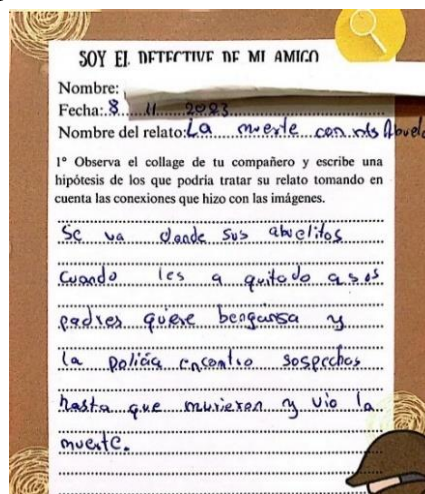 SOY EL DETECTIVE DE MI AMIGO
Nombre:
Fecha: 8 11 2023
Nombre del relato: La muerte con mis Abuelo
1º Observa el collage de tu compañero y escribe una
hipótesis de los que podría tratar su relato tomando en
cuenta las conexiones que hizo con las imágenes.
Se va donde sus abuelitos
Cuando les a quitado a sus
padres quiere bengansa y
la policia encontro sospechos
hasta que murieron y vio la
muerte.